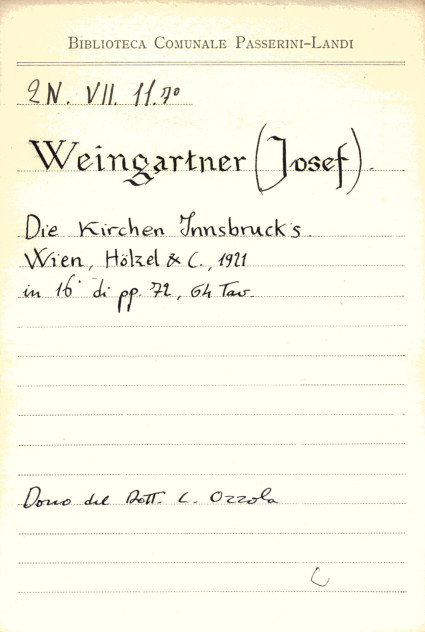 BIBLIOTECA COMUNALE PASSERINI-LANDI
2N. VII. 11.70
Weingartner (Josef).
Die Kirchen Innsbruck's.
Wien, Hölzel & C., 1921
in 16° di pp. 72, 64 Tav.
Dono del Dott. L. Ozzola